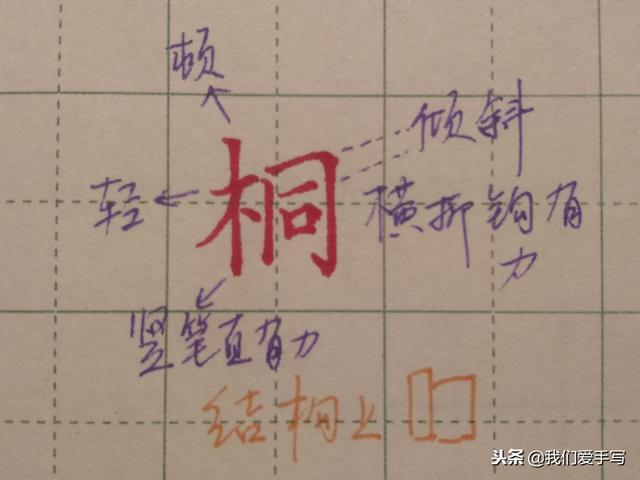 顿
倾斜
桐
轻
横折钩有
力
竖笔直有力
结构上
头条 @我们爱手写